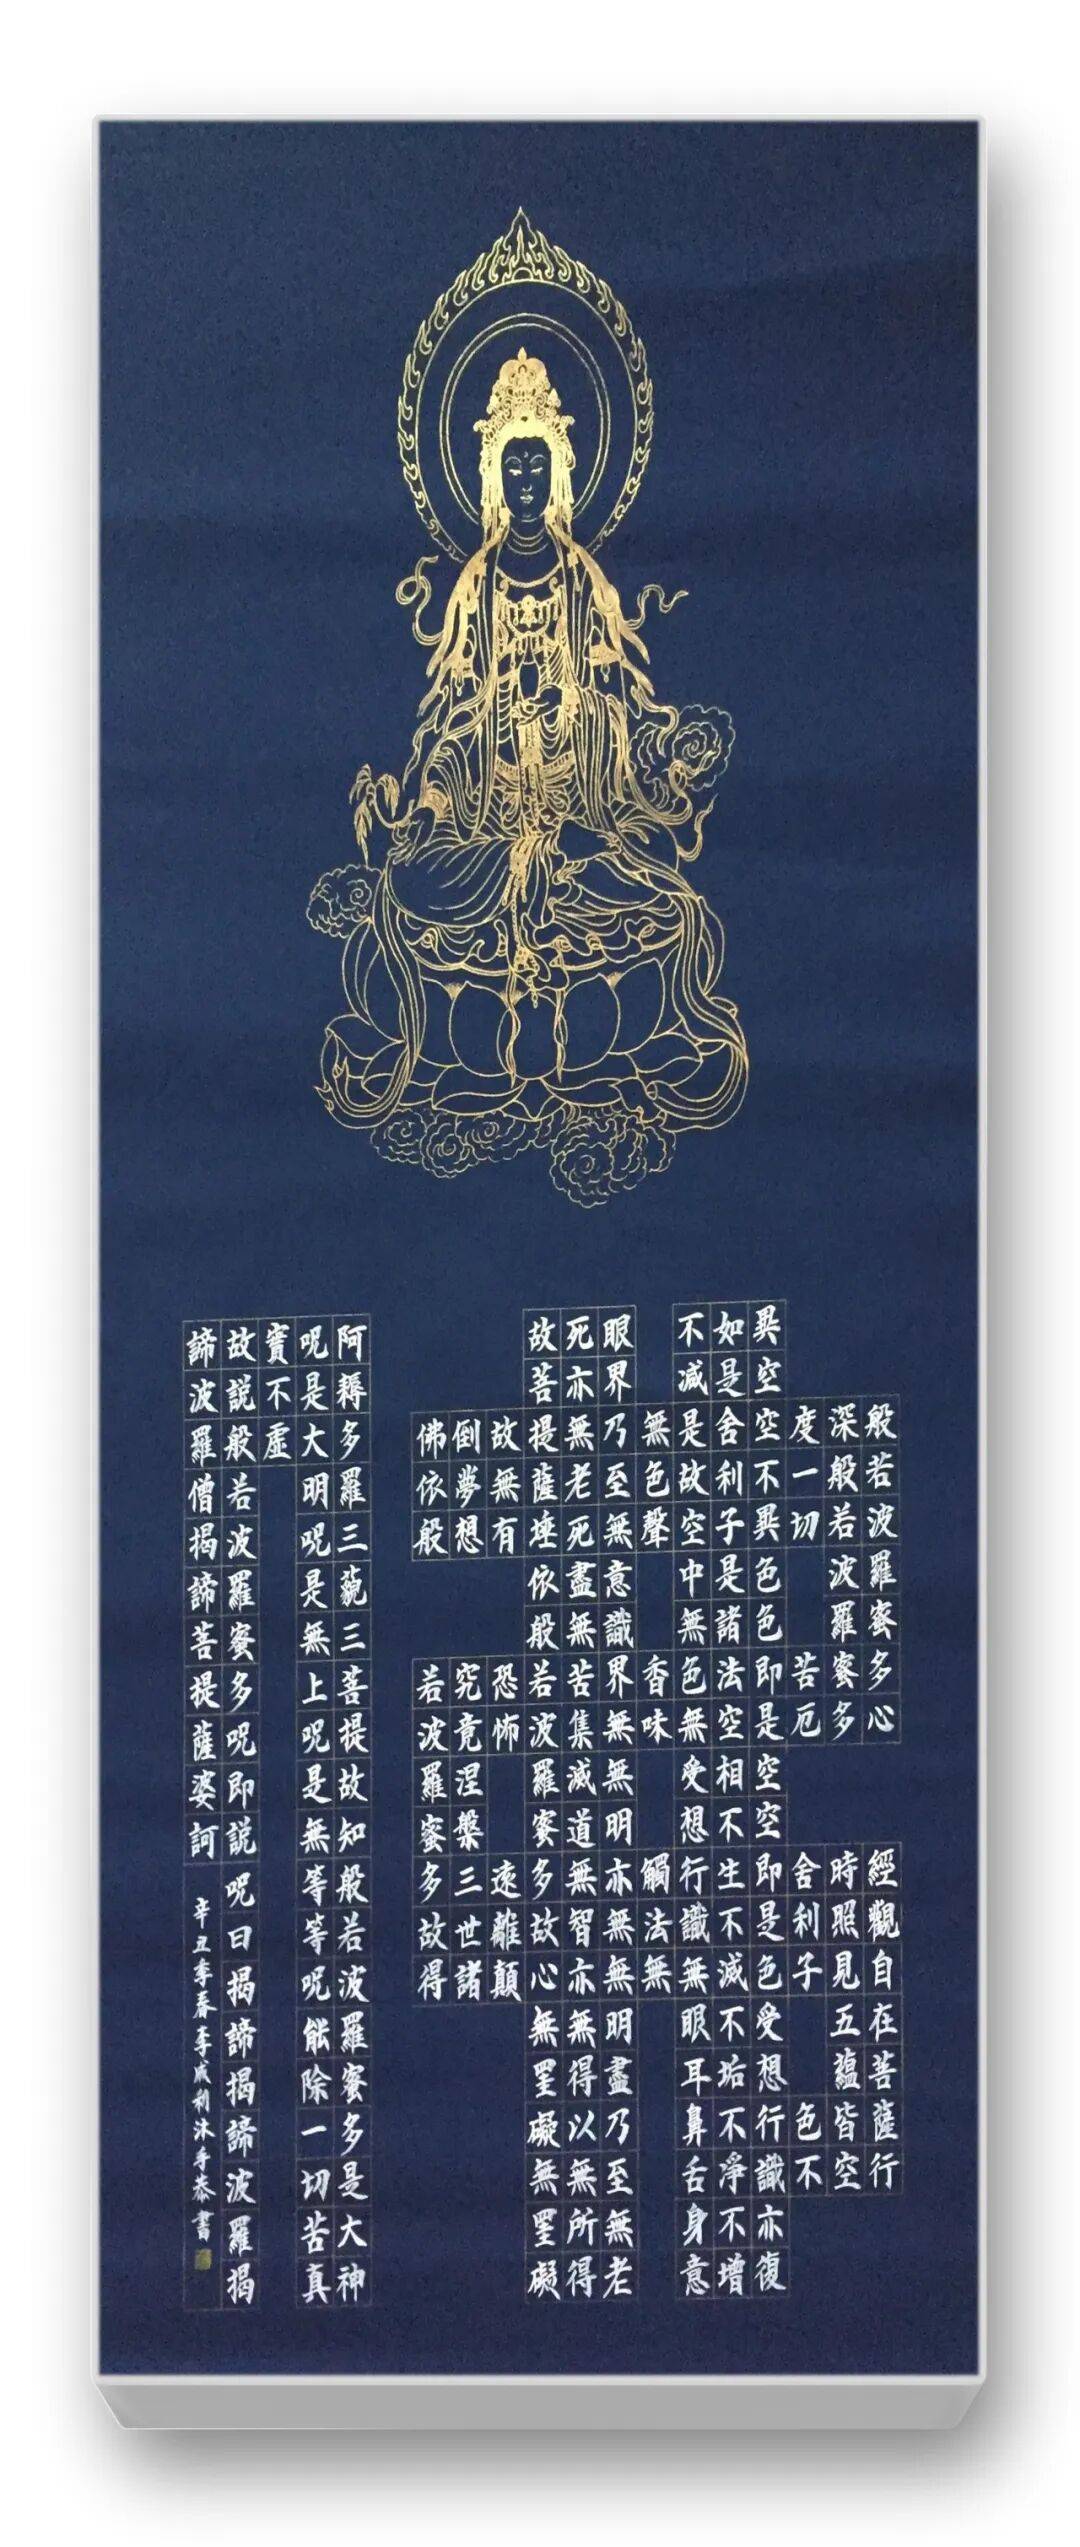 般若波羅蜜多心經觀自在菩薩行
深般若波羅蜜多時照見五蘊皆空
度一切苦厄舍利子色不
異空空不異色色即是空空即是色受想行識亦復
如是舍利子是諸法空相不生不滅不垢不淨不增
不減是故空中無色無受想行識無眼耳鼻舌身意
無色聲香味觸法無
眼界乃至無意識界無無明亦無無明盡乃至無老
死亦無老死盡無苦集滅道無智亦無得以無所得
故菩提薩埵依般若波羅蜜多故心無罣礙無罣礙
故無有恐怖遠離顛
倒夢想究竟涅槃三世諸
佛依般若波羅蜜多故得
阿耨多羅三藐三菩提故知般若波羅蜜多是大神
呪是大明呪是無上呪是無等等呪能除一切苦真
實不虛
故説般若波羅蜜多呪即説呪曰揭諦揭諦波羅揭
諦波羅僧揭諦菩提薩婆訶
辛丑季春李成利沐手恭書